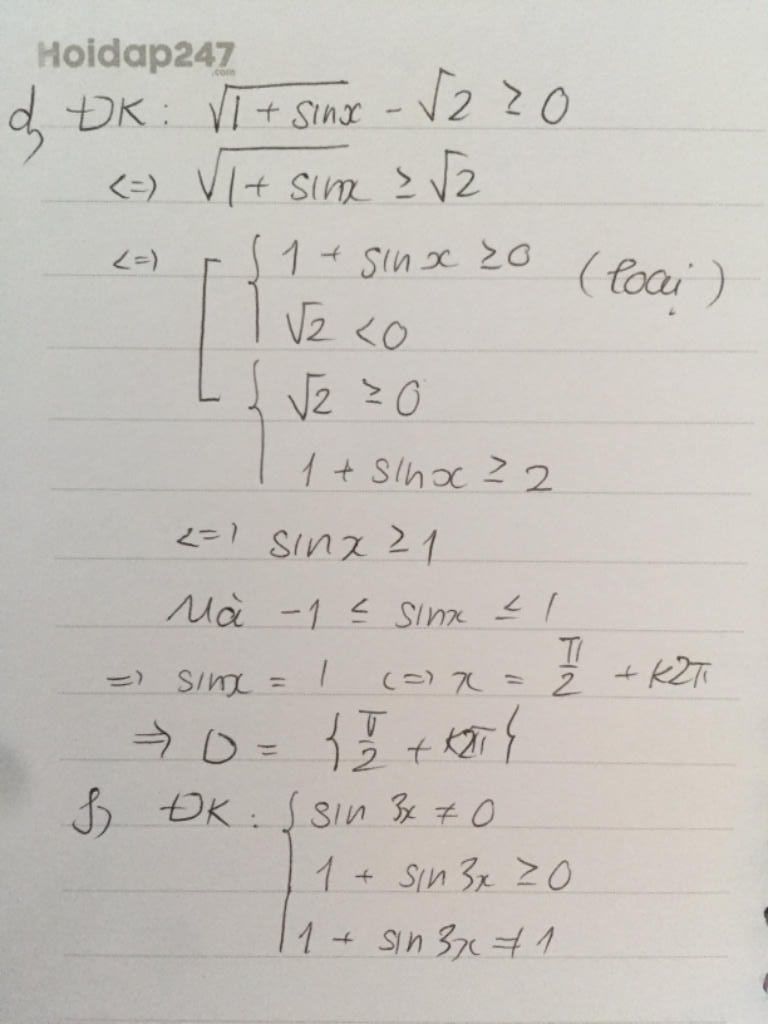 Hoidap247
.com
d, ĐK: √(1 + sinx) - √2 ≥ 0
<=> √(1 + sinx) ≥ √2
<=> [ { 1 + sinx ≥ 0 (loại)
√2 < 0
{ √2 ≥ 0
1 + sinx ≥ 2
<=> sinx ≥ 1
Mà -1 ≤ sinx ≤ 1
=> sinx = 1 <=> x = π/2 + k2π
=> D = {π/2 + k2π}
f, ĐK: { sin 3x ≠ 0
1 + sin3x ≥ 0
1 + sin3x ≠ 1